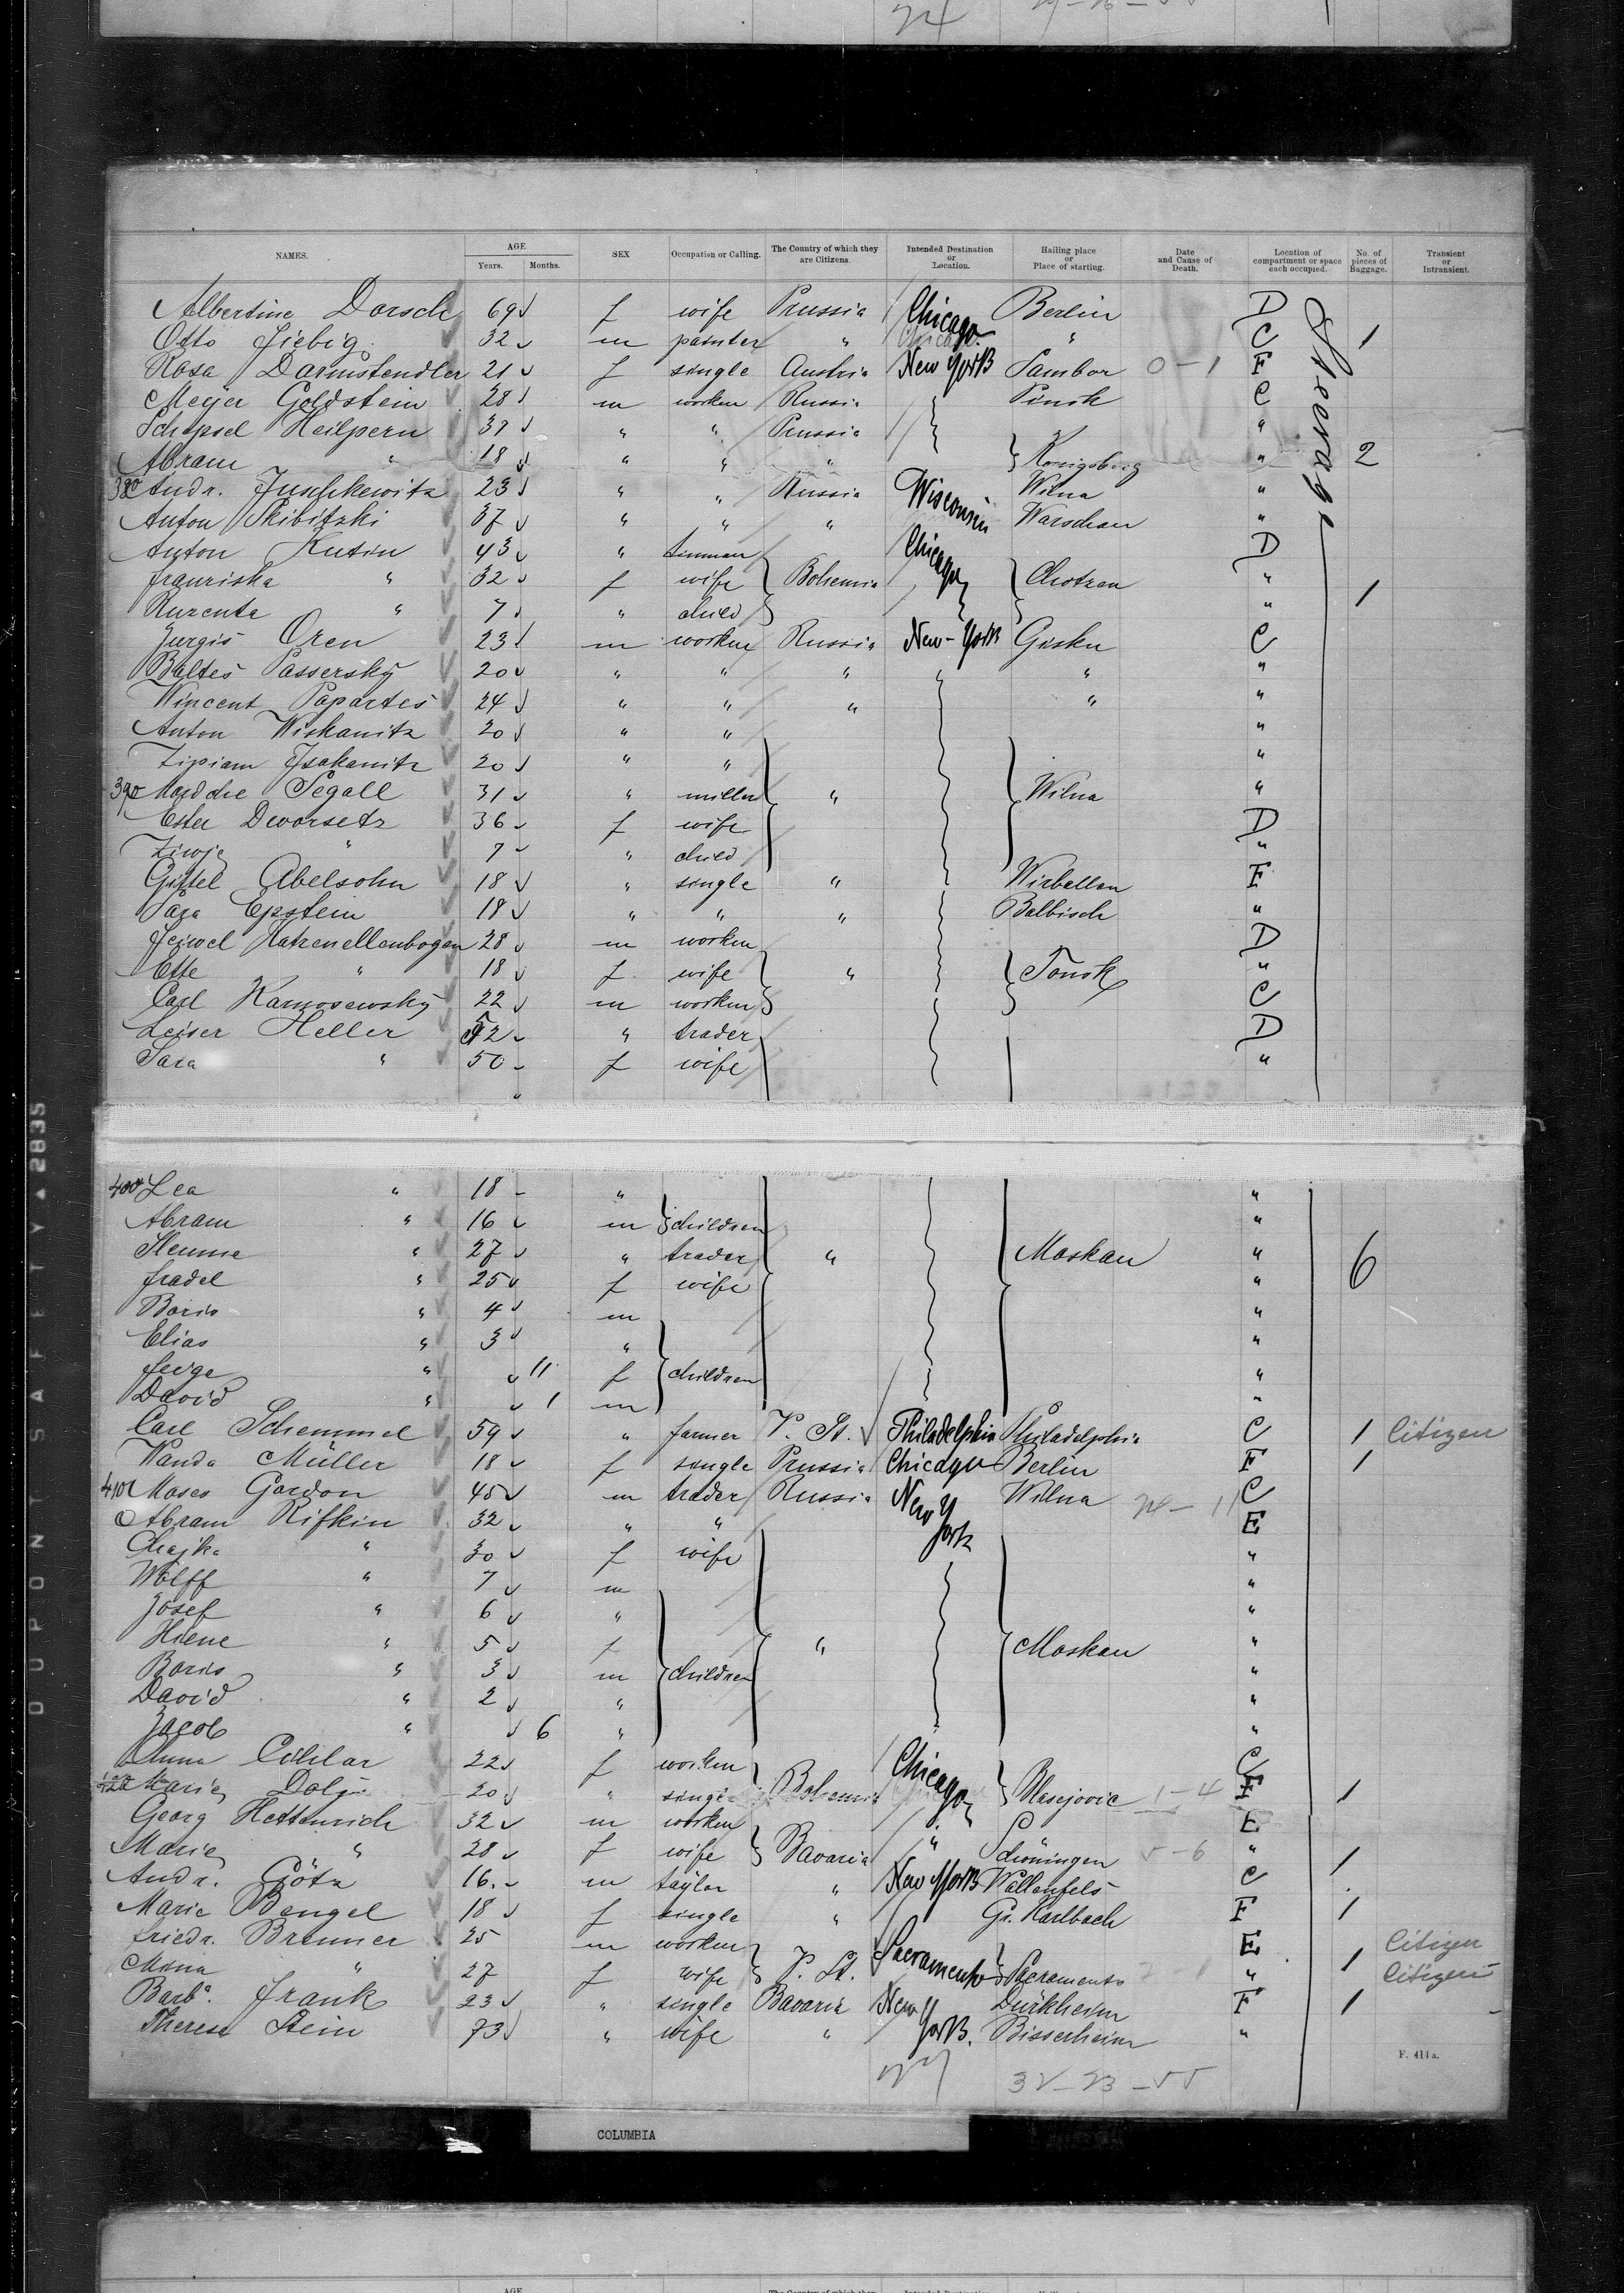 NAMES. AGE Years. Months. SEX Occupation or Calling. The Country of which they are Citizens. Intended Destination or Location. Hailing place or Place of starting. Date and Cause of Death. Location of compartment or space each occupied. No. of pieces of Baggage. Transient or Intransient.
Albertine Dorsch 69 f wife Prussia Chicago Berlin D Steerage
Otto 32 m painter " Chicago " C 1
Rosa Darmstendler 21 f single Austria New York Sambor 0-1 F
Meyer Goldstein 28 m worker Russia Pinsk C
Schepsel Heilpern 39 " " Prussia "
Abram " 18 " " " Königsberg " 2
380 Andr. Juschkewitz 23 " " Russia Wisconsin Wilna "
Anton Skibitzki 37 " " " Warschau "
Anton Kutin 43 " tinman Chicago D
Franziska " 32 f wife Bohemia "
" 7 " child " 1
Jurgis Oren 23 m worker Russia New-York C
Baltes Passersky 20 " " " " "
Wincent Papartes 24 " " " " "
Anton Wiskanitz 20 " " "
20 " " "
390 Segall 31 " miller " Wilna "
Ester Dworsetz 36 f wife D
" 7 " child "
Gittel Abelsohn 18 " single " Wirballen F
Sara Epstein 18 " " " Balbisch "
Feiwel Katzenellenbogen 28 m worker D
Ette " 18 f wife " "
Carl 22 m worker C
Leiser Heller 52 " trader D
Sara " 50 f wife "
400 Lea " 18 " "
Abram " 16 m children "
" 27 " trader " Moskau " 6
Fradel " 25 f wife "
Boris " 4 m "
Elias " 3 " "
" 11 f children "
David " 1 m "
Carl Schemmel 59 " farmer V. St. Philadelphia Philadelphia C 1 Citizen
Wanda Müller 18 f single Prussia Chicago Berlin F 1
410 Moses Gordon 45 m trader Russia New York Wilna C
Abram Rifkin 32 " " E
Chajke " 30 f wife "
Wolff " 7 m "
Josef " 6 " "
Hiene " 5 f " Moskau "
Boris " 3 m children "
David " 2 " "
Jacob " 6 " "
Anna 22 f worker Chicago C
420 Marie 20 " single Bohemia Blasejovic 1-4 F 1
Georg Hettenrich 32 m worker " E
Marie " 28 f wife Bavaria " Schöningen 5-6 " 1
Andr. Götz 16 m taylor " New York Wallenfels C
Marie Bengel 18 f single " Gr. Karlbach F 1
Friedr. Brenner 25 m worker E Citizen
" 27 f wife V. St. Sacramento Sacramento " 1 Citizen
Barba. Frank 23 " single Bavaria New York Dürkheim F 1
Therese Stein 73 " wife " Bisserheim "
F. 411a.
COLUMBIA
DUPONT SAFETY A 2835